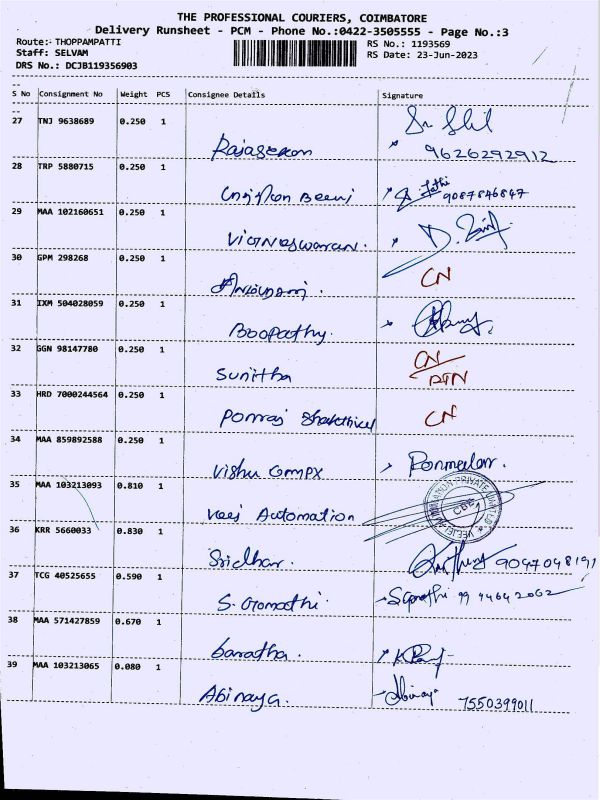 THE PROFESSIONAL COURIERS, COIMBATORE
Delivery Runsheet - PCM - Phone No.:0422-3505555 - Page No.:3
Route:- THOPPAMPATTI
RS No.: 1193569
Staff: SELVAM
RS Date: 23-Jun-2023
DRS No.: DCJB119356903
S No Consignment No Weight PCS Consignee Details Signature
27 TNJ 9638689 0.250 1
Rajasekaran 9626292912
28 TRP 5880715 0.250 1
Beevi 9087846847
29 MAA 102160651 0.250 1
Vigneswaran. D.
30 GPM 298268 0.250 1
CN
31 IXM 504028059 0.250 1
Boopathy.
32 GGN 98147780 0.250 1
Sunitha CN
33 HRD 7000244564 0.250 1
Ponraj Shakthivel CN
34 MAA 859892588 0.250 1
Vishu Compx Ponmalar.
35 MAA 103213093 0.810 1
Veej Automation
PRIVATE LIMITED CBE
36 KRR 5660033 0.830 1
Sridhar. 9047048191
37 TCG 40525655 0.590 1
S. Gomathi. S.Gomathi 99 4464 2062
38 MAA 571427859 0.670 1
baratha.
39 MAA 103213065 0.080 1
Abinaya. Abinaya 7550399011